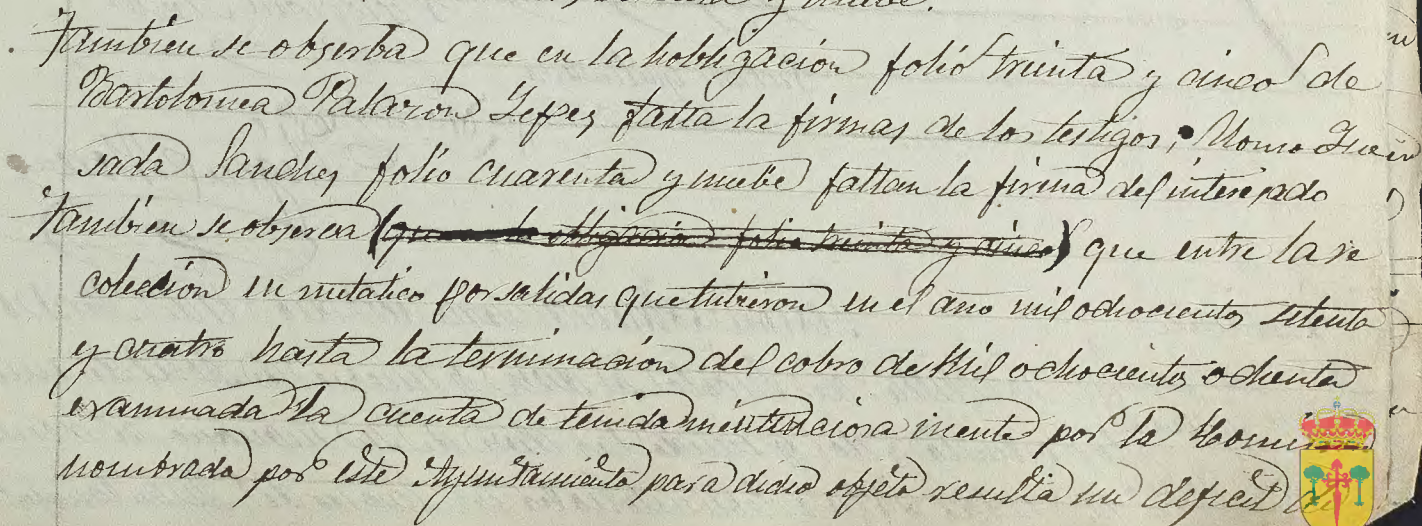 y nuebe.
Tambien se obserba que en la hobligación folio treinta y cinco de
Bartolomea Palazon Yepes falta la firmas de los testigos,
sada Sanchez folio cuarenta y nuebe faltan la firma del interesado
Tambien se observa (que en la obligacion folio treinta y cinco) que entre la re
colección en metalico por salidas que tubieron en el año mil ochocientos setenta
y cuatro hasta la terminación del cobro de Mil ochocientos ochenta
examinada la cuenta detenida minuciosa mente por la
nombrada por este Ayuntamiento para dicho objeto resulta un deficit